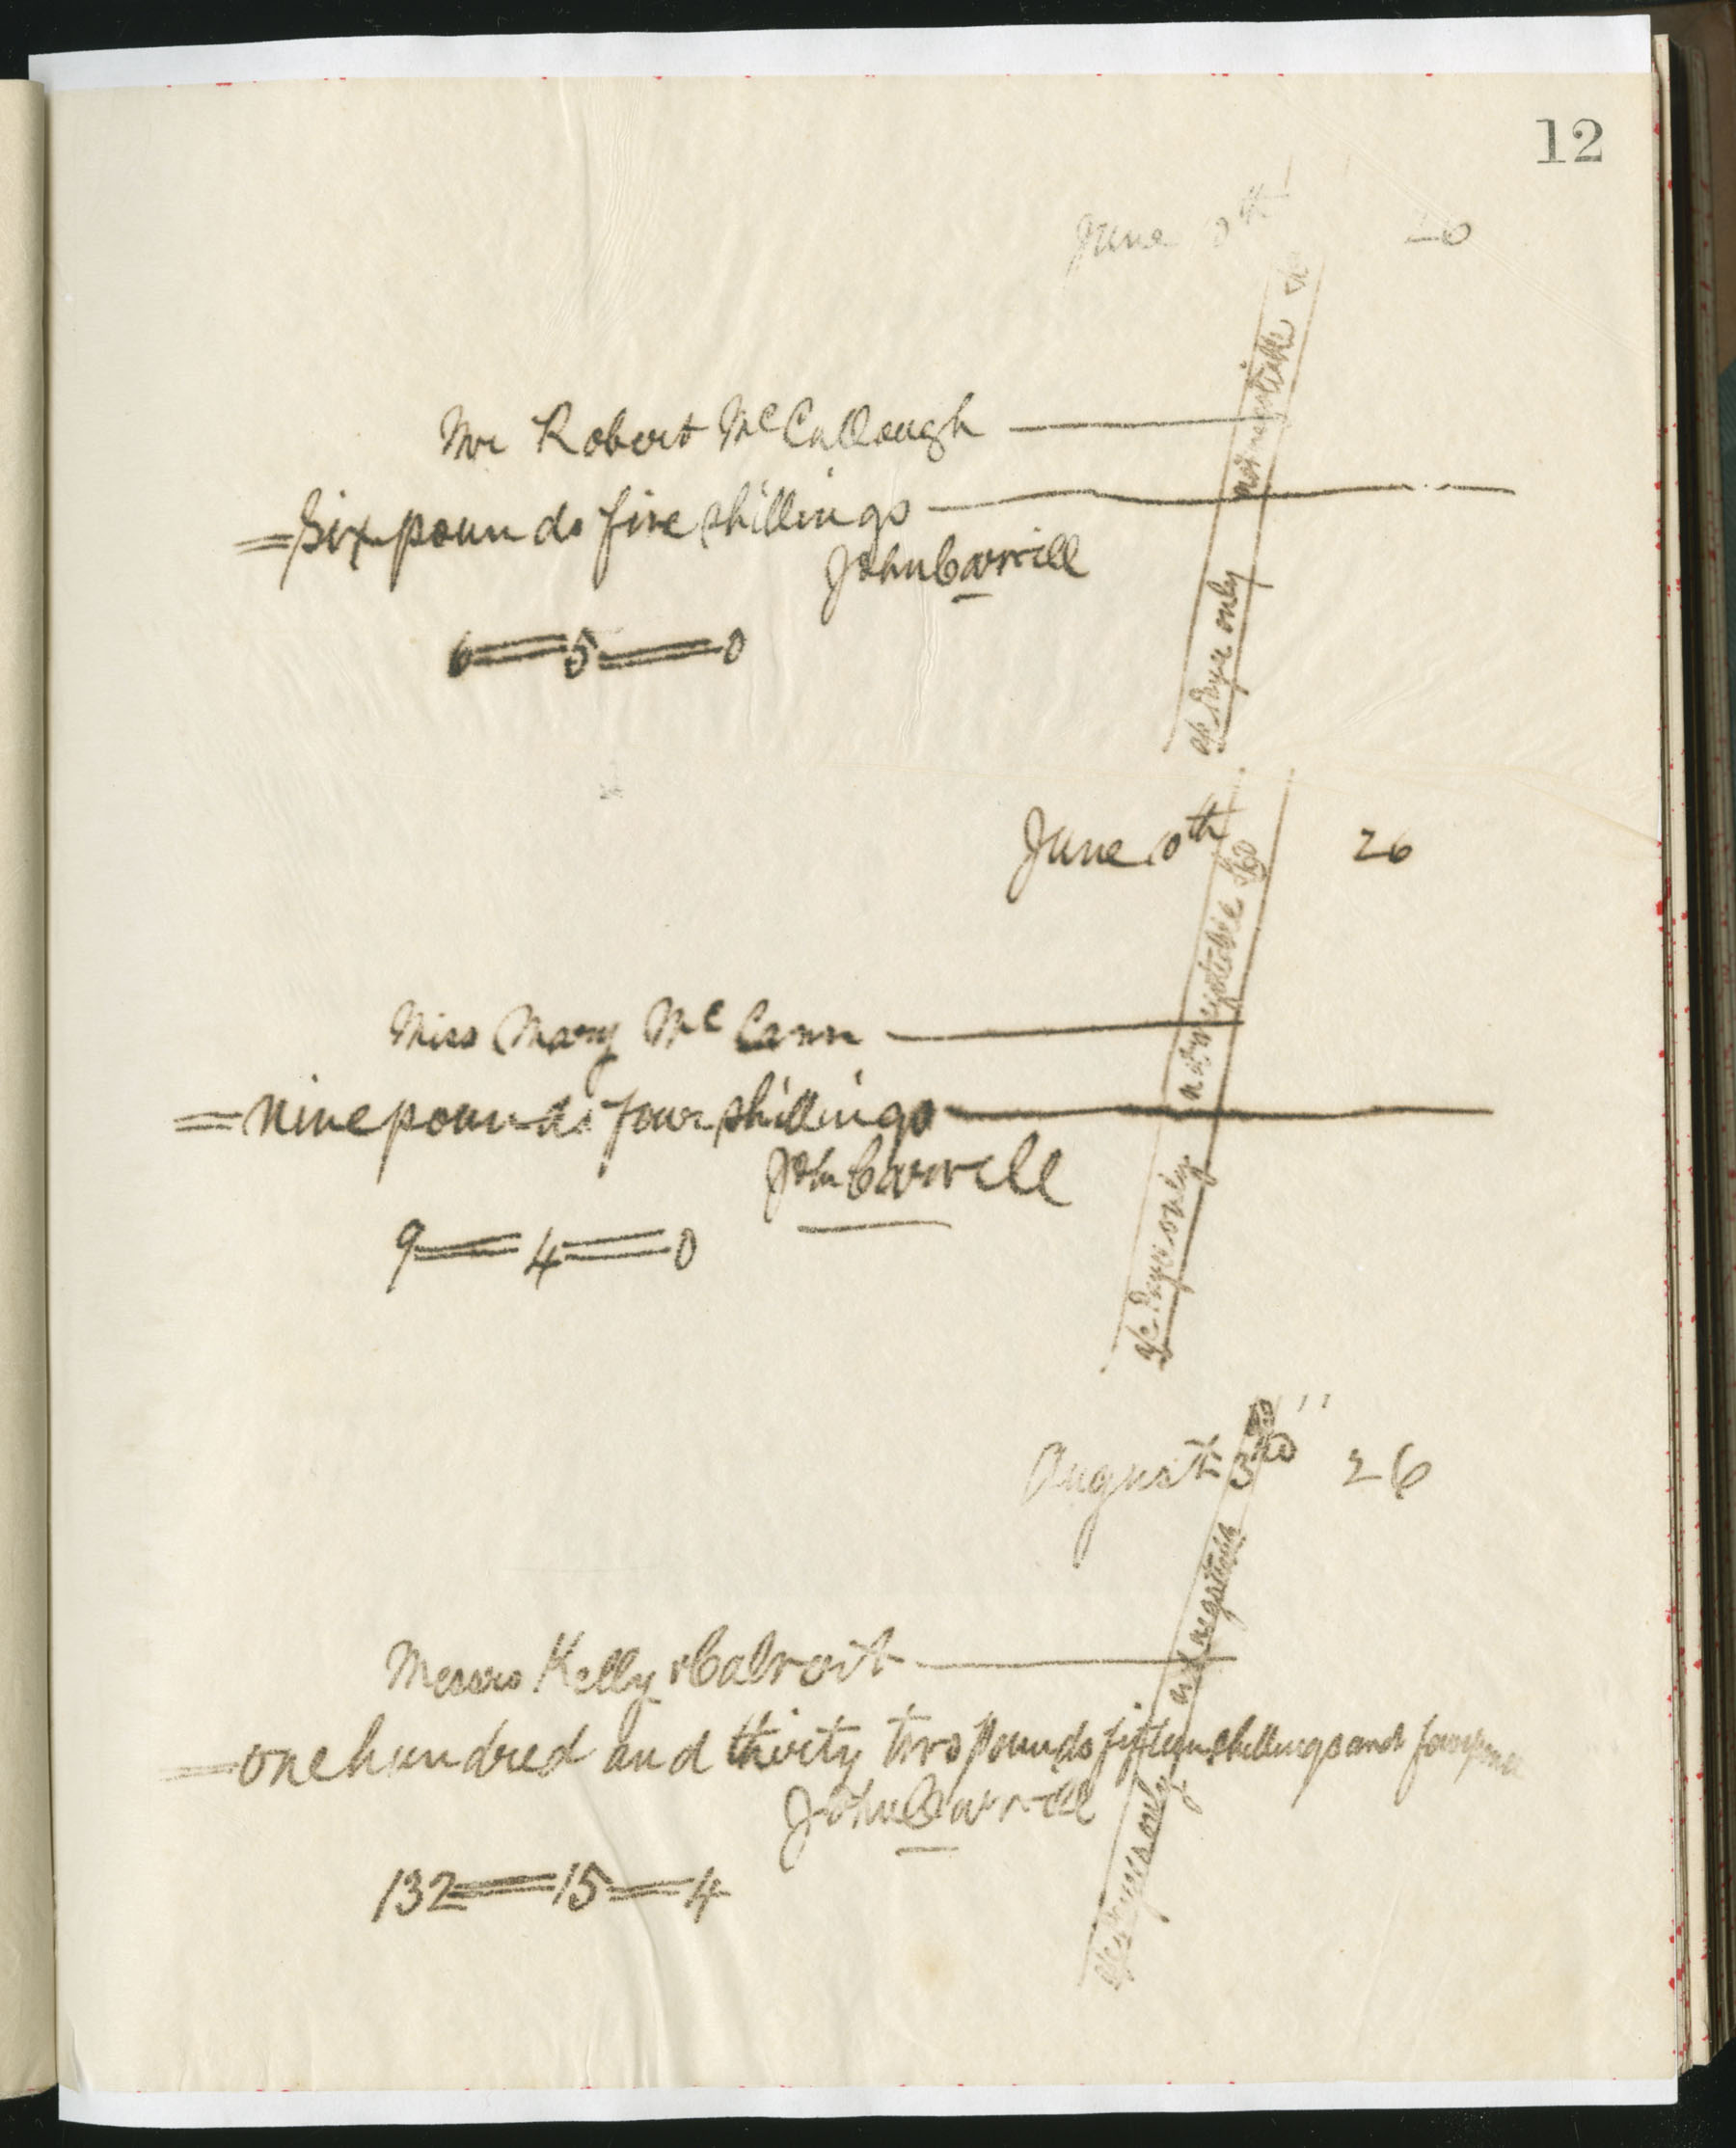 12
June 10th 26
not negotiable
a/c Payee only
Mr Robert McCullough
=Six pounds five shillings
John Carvill
6=5=0
June 10th 26
not negotiable &Co
a/c Payee only
Miss Mary McCann
=Nine pounds four shillings
John Carvill
9=4=0
August 3rd 26
not negotiable &Co
a/c Payees only
Messrs Kelly &
=One hundred and thirty two pounds fifteen shillings and fourpence
John Carvill
132=15=4